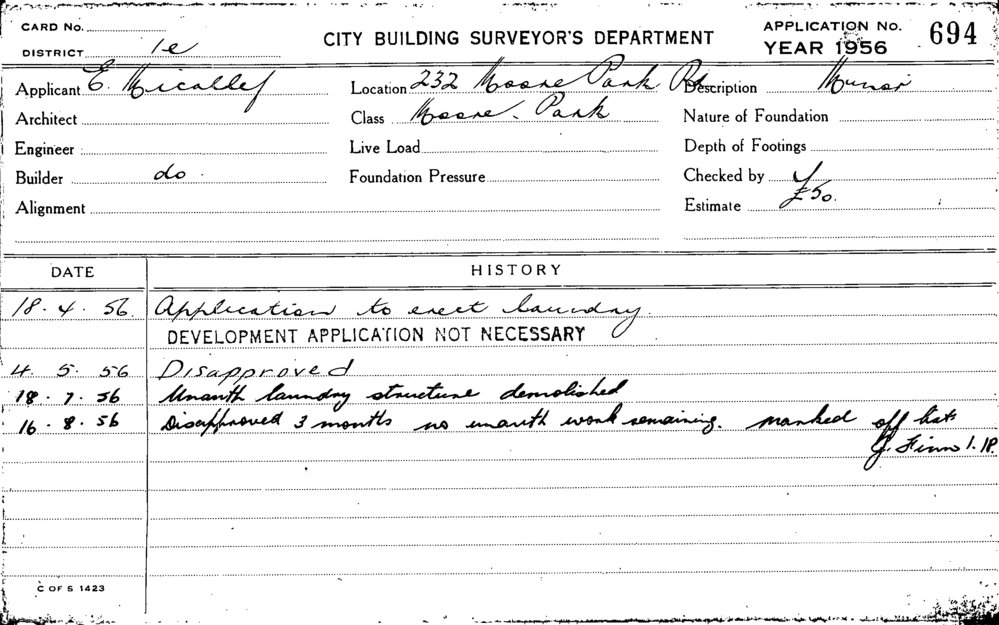 CARD No.
DISTRICT 1e
CITY BUILDING SURVEYOR'S DEPARTMENT
APPLICATION No. 694
YEAR 1956
Applicant E. Micallef
Location 232 Moore Park Rd
Description Minor
Architect
Class Moore Park
Nature of Foundation
Engineer
Live Load
Depth of Footings
Builder do.
Foundation Pressure
Checked by
Alignment
Estimate £50.
DATE
HISTORY
18. 4. 56. Application to erect laundry.
DEVELOPMENT APPLICATION NOT NECESSARY
4. 5. 56 Disapproved
18. 7. 56 Unauth laundry structure demolished
16. 8. 56 Disapproved 3 months no unauth work remaining. marked off list
J. Finn
C OF S 1423